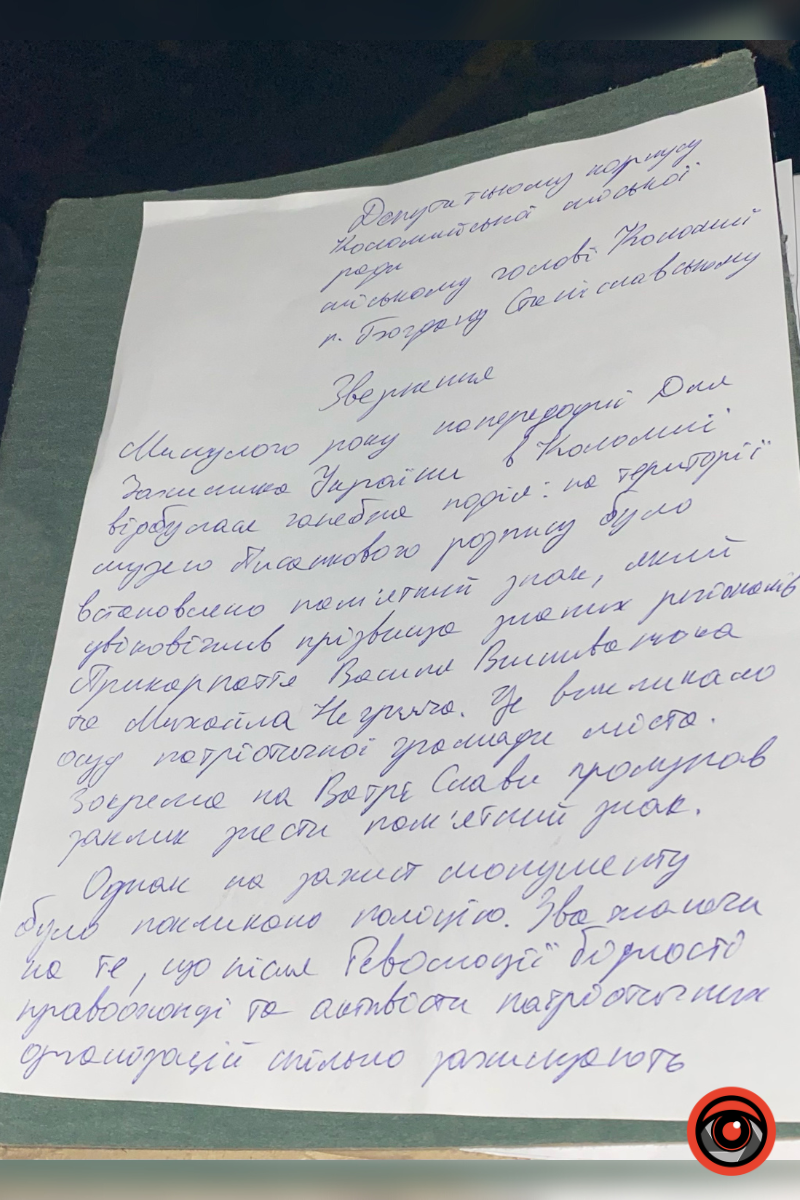 Депутатському корпусу
Коломийської міської
ради
міському голові Коломиї
п. Богдану Станіславському
Звернення
Минулого року напередодні Дня
Захисника України в Коломиї
відбулася ганебна подія: на території
музею Писанкового розпису було
встановлено пам'ятний знак, який
увіковічив прізвища знаних регіоналів
Прикарпаття Василя Вишиванюка
та Михайла Негрича. Це викликало
осуд патріотичної громади міста.
Зокрема на Ватрі Слави пролунав
заклик знести пам'ятний знак.
Однак на захист монументу
було покликано поліцію. Зважаючи
на те, що після Революції Гідності
правоохонці та активісти патріотичних
організацій спільно захищають